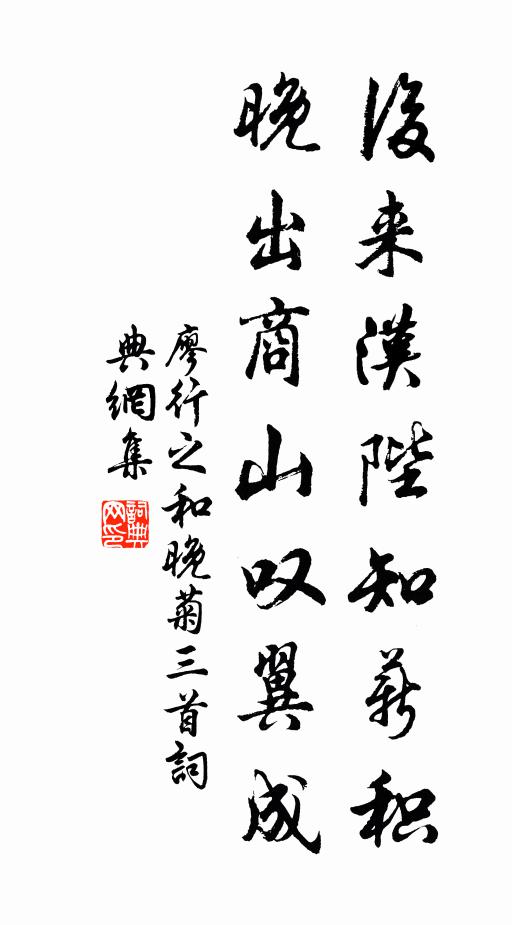 後来漢陛知薪积
晚出商山叹翼成
廖行之和晚菊三首詞
典網集
詞典网印